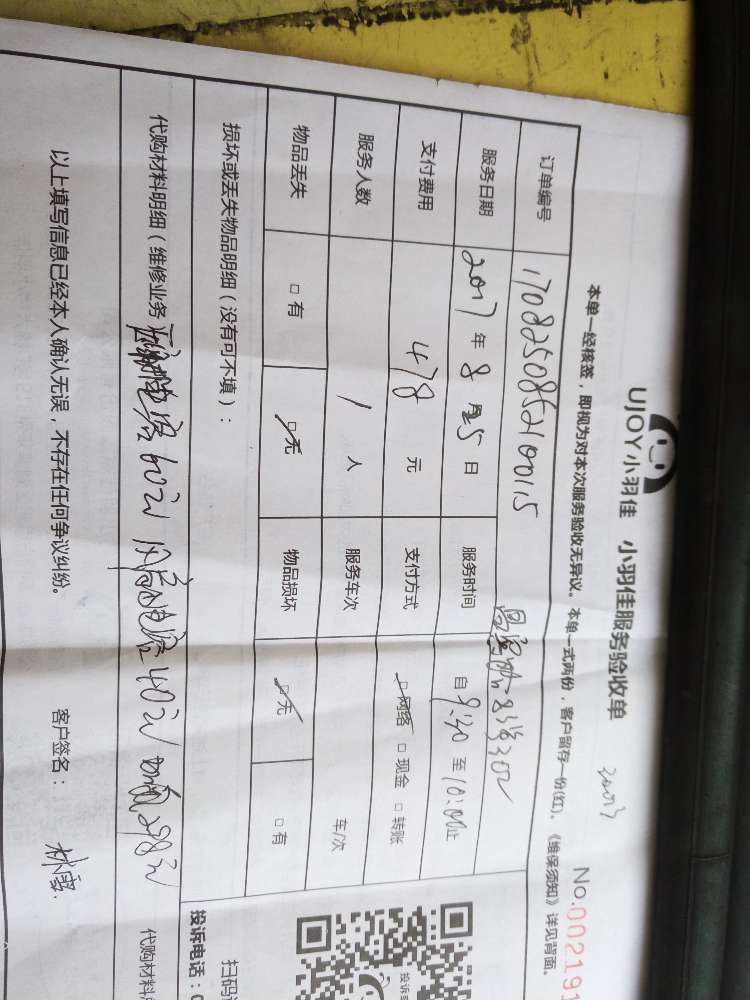 UJOY小羽佳 小羽佳服务验收单
No.002191
本单一经核签，即视为对本次服务验收无异议。本单一式两份，客户留存一份(红)。《维保须知》详见背面。
订单编号 1708250852100115
服务日期 2017年8月25日 服务时间 自9:30至10:00止
支付费用 478元 支付方式 网络 □现金 □转账
服务人数 1人 服务车次 车/次
物品丢失 □有 无 物品损坏 无 □有
损坏或丢失物品明细（没有可不填）：
代购材料明细（维修业务 电容60元 风扇电容40元 298元 代购材料
以上填写信息已经本人确认无误，不存在任何争议纠纷。 客户签名：
投诉
扫码
投诉电话：0